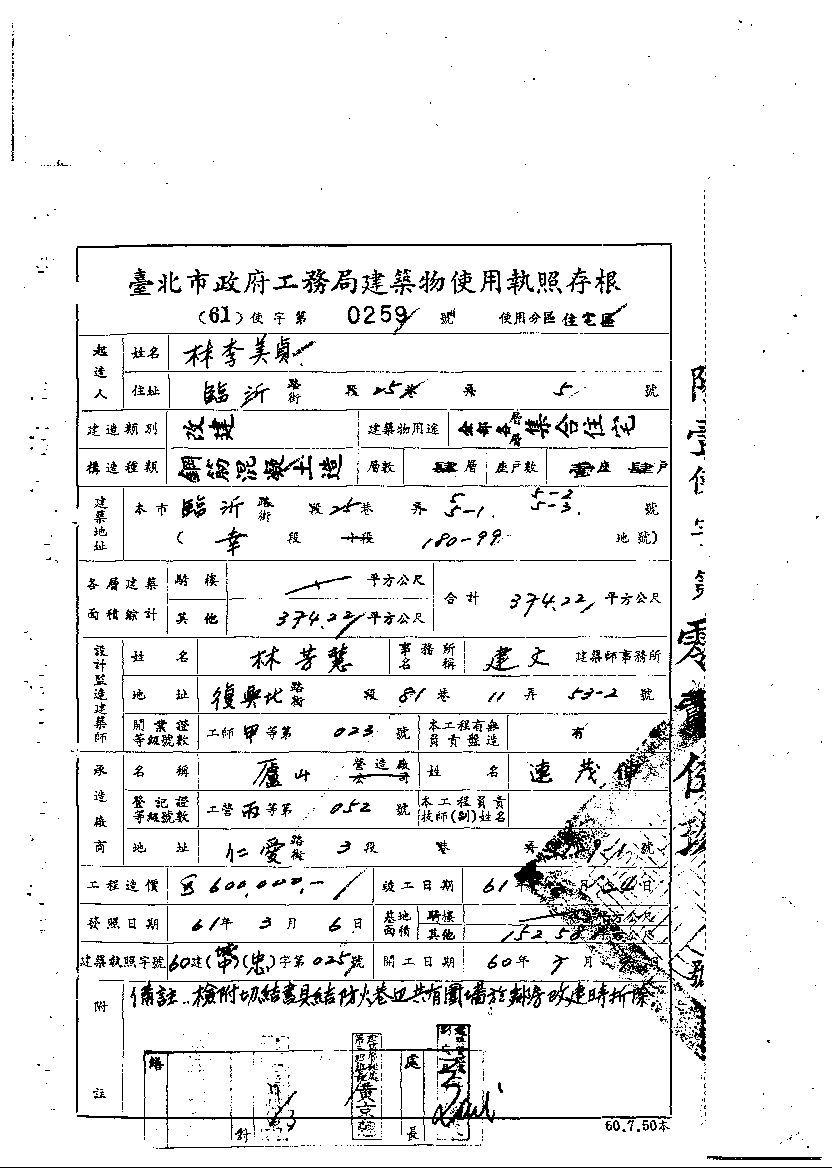 臺北市政府工務局建築物使用執照存根
(61) 使字第 0259 號 使用分區 住宅區
起造人 姓名 林李美貞
住址 臨沂 路街 段 25巷 弄 5 號
建造類別 改建 建築物用途 全部各層 集合住宅
構造種類 鋼筋混凝土造 層數 肆層 座戶數 壹座 肆戶
建築地址 本市 臨沂 路街 段 25巷 弄 5 5-1. 5-2 5-3. 號
( 幸 段 十段 180-99 地號)
各層建築面積綜計 騎樓 平方公尺
其他 374.22 平方公尺 合計 374.22 平方公尺
設計監造建築師 姓名 林芳慧 事務所名稱 建文 建築師事務所
地址 復興北 路街 段 81巷 11弄 53-2 號
開業證等級號數 工師 甲等第 023 號 本工程有無負責監造 有
承造廠商 名稱 廬山 營造廠公司 姓名 連茂
登記證等級號數 工營 丙等第 052 號 本工程負責技師(副)姓名
地址 仁愛 路街 3段 巷 弄 號
工程造價 600,000.- 竣工日期 61年 月 日
發照日期 61年 3月 6日 基地面積 騎樓 平方公尺
其他 152.58 平方公尺
建築執照字號 60建( )(忠)字第 025 號 開工日期 60年 月
附註 備註:檢附切結書具結防火巷 共有圍墻於 房改建時拆除
繕 對 黃京 處長
60.7.50本